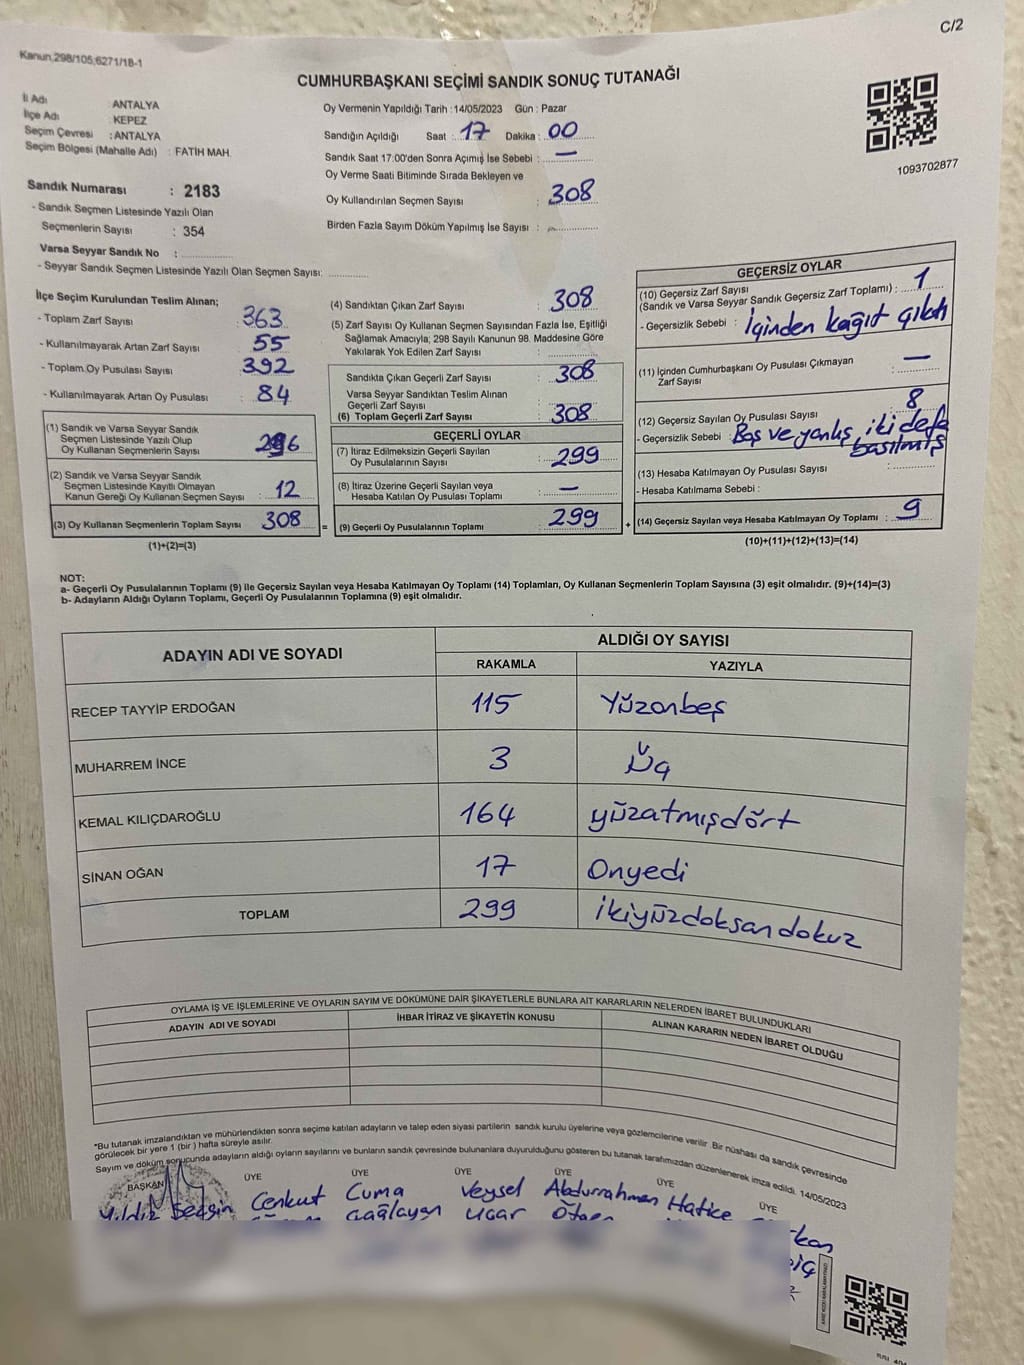 C/2
Kanun,298/105;6271/18-1
CUMHURBAŞKANI SEÇİMİ SANDIK SONUÇ TUTANAĞI
İl Adı : ANTALYA
İlçe Adı : KEPEZ
Seçim Çevresi : ANTALYA
Seçim Bölgesi (Mahalle Adı) : FATİH MAH.
Sandık Numarası : 2183
- Sandık Seçmen Listesinde Yazılı Olan
Seçmenlerin Sayısı : 354
Varsa Seyyar Sandık No :
- Seyyar Sandık Seçmen Listesinde Yazılı Olan Seçmen Sayısı:
Oy Vermenin Yapıldığı Tarih : 14/05/2023 Gün : Pazar
Sandığın Açıldığı Saat : 17 Dakika : 00
Sandık Saat 17:00'den Sonra Açımış İse Sebebi : —
Oy Verme Saati Bitiminde Sırada Bekleyen ve
Oy Kullandırılan Seçmen Sayısı : 308
Birden Fazla Sayım Döküm Yapılmış İse Sayısı :
1093702877
İlçe Seçim Kurulundan Teslim Alınan;
- Toplam Zarf Sayısı : 363
- Kullanılmayarak Artan Zarf Sayısı : 55
- Toplam Oy Pusulası Sayısı : 392
- Kullanılmayarak Artan Oy Pusulası : 84
(1) Sandık ve Varsa Seyyar Sandık
Seçmen Listesinde Yazılı Olup
Oy Kullanan Seçmenlerin Sayısı : 296
(2) Sandık ve Varsa Seyyar Sandık
Seçmen Listesinde Kayıtlı Olmayan
Kanun Gereği Oy Kullanan Seçmen Sayısı : 12
(3) Oy Kullanan Seçmenlerin Toplam Sayısı : 308
(1)+(2)=(3)
(4) Sandıktan Çıkan Zarf Sayısı : 308
(5) Zarf Sayısı Oy Kullanan Seçmen Sayısından Fazla İse, Eşitliği
Sağlamak Amacıyla; 298 Sayılı Kanunun 98. Maddesine Göre
Yakılarak Yok Edilen Zarf Sayısı :
Sandıkta Çıkan Geçerli Zarf Sayısı : 308
Varsa Seyyar Sandıktan Teslim Alınan
Geçerli Zarf Sayısı :
(6) Toplam Geçerli Zarf Sayısı : 308
GEÇERLİ OYLAR
(7) İtiraz Edilmeksizin Geçerli Sayılan
Oy Pusulalarının Sayısı : 299
(8) İtiraz Üzerine Geçerli Sayılan veya
Hesaba Katılan Oy Pusulası Toplamı : —
(9) Geçerli Oy Pusulalarının Toplamı : 299
GEÇERSİZ OYLAR
(10) Geçersiz Zarf Sayısı
(Sandık ve Varsa Seyyar Sandık Geçersiz Zarf Toplamı) : 1
- Geçersizlik Sebebi : İçinden kağıt çıktı
(11) İçinden Cumhurbaşkanı Oy Pusulası Çıkmayan
Zarf Sayısı : —
(12) Geçersiz Sayılan Oy Pusulası Sayısı : 8
- Geçersizlik Sebebi : Boş ve yanlış, iki defa
basılmış
(13) Hesaba Katılmayan Oy Pusulası Sayısı :
- Hesaba Katılmama Sebebi :
(14) Geçersiz Sayılan veya Hesaba Katılmayan Oy Toplamı : 9
(10)+(11)+(12)+(13)=(14)
NOT:
a- Geçerli Oy Pusulalarının Toplamı (9) ile Geçersiz Sayılan veya Hesaba Katılmayan Oy Toplamı (14) Toplamları, Oy Kullanan Seçmenlerin Toplam Sayısına (3) eşit olmalıdır. (9)+(14)=(3)
b- Adayların Aldığı Oyların Toplamı, Geçerli Oy Pusulalarının Toplamına (9) eşit olmalıdır.
ADAYIN ADI VE SOYADI
ALDIĞI OY SAYISI
RAKAMLA YAZIYLA
RECEP TAYYİP ERDOĞAN 115 Yüzonbeş
MUHARREM İNCE 3 Üç
KEMAL KILIÇDAROĞLU 164 yüzatmışdört
SİNAN OĞAN 17 Onyedi
TOPLAM 299 ikiyüzdoksandokuz
OYLAMA İŞ VE İŞLEMLERİNE VE OYLARIN SAYIM VE DÖKÜMÜNE DAİR ŞİKAYETLERLE BUNLARA AİT KARARLARIN NELERDEN İBARET BULUNDUKLARI
ADAYIN ADI VE SOYADI İHBAR İTİRAZ VE ŞİKAYETİN KONUSU ALINAN KARARIN NEDEN İBARET OLDUĞU
*Bu tutanak imzalandıktan ve mühürlendikten sonra seçime katılan adayların ve talep eden siyasi partilerin sandık kurulu üyelerine veya gözlemcilerine verilir. Bir nüshası da sandık çevresinde
görülecek bir yere 1 (bir ) hafta süreyle asılır.
Sayım ve döküm sonucunda adayların aldığı oyların sayılarını ve bunların sandık çevresinde bulunanlara duyurulduğunu gösteren bu tutanak tarafımızdan düzenlenerek imza edildi. 14/05/2023
BAŞKAN ÜYE ÜYE ÜYE ÜYE ÜYE ÜYE
Yıldız Sezgin Cenkut Cuma Veysel Abdurrahman Hatice
Çağlayan Uçar